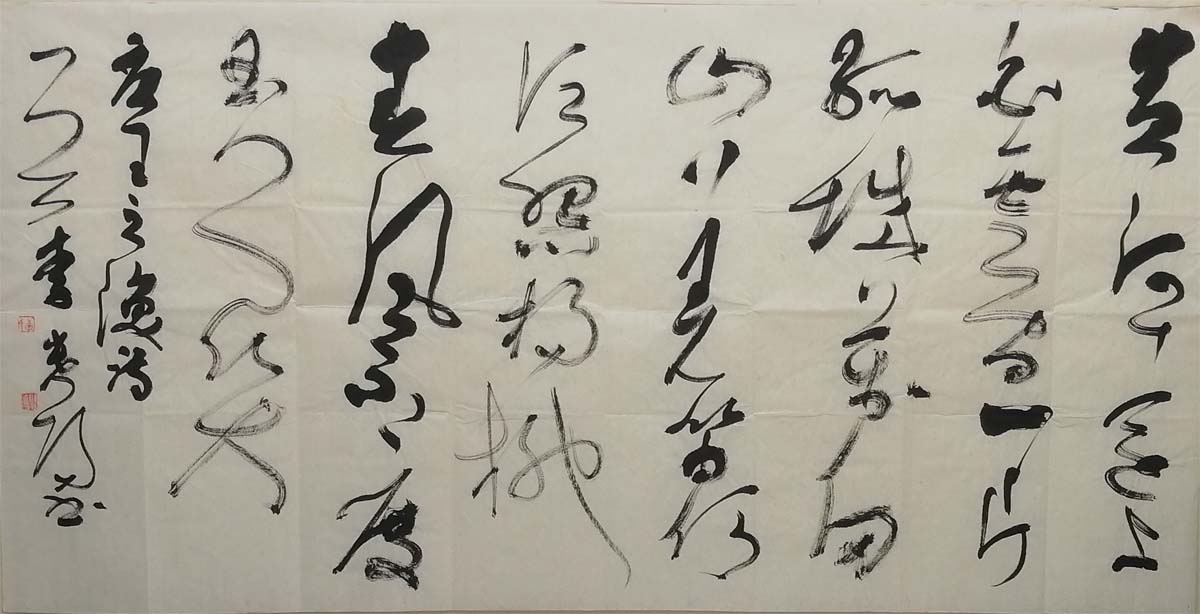 黄河远上
白云间一片
孤城万仞
山羌笛何
须怨杨柳
春风不度
玉门关
唐王之涣诗
李